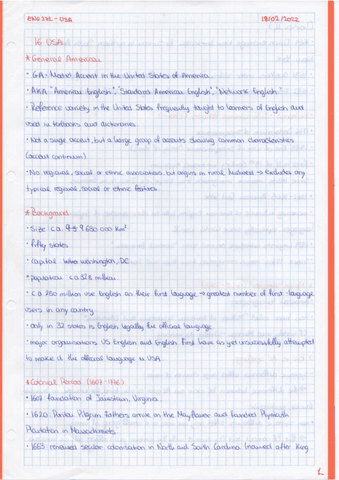 ENG 271 - USA
18/02/2022
16 USA
* General American
• GA - Model Accent in the United States of America
• AKA "American English", "Standard American English", "Network English"
• Reference variety in the United States frequently taught to learners of English and
used in textbooks and dictionaries.
• Not a single accent, but a large group of accents showing common characteristics
(accent continuum)
• No regional, social or ethnic associations, but origins in rural Midwest → excludes any
typical regional, social or ethnic features.
* Background
• Size: ca. 9 650 000 km²
• fifty states
• capital Washington, DC
• population: ca 328 million
• ca 250 million use English as their first language → greatest number of first-language
users in any country.
• only in 32 states is English legally the official language
• major organisations US English and English First have as yet unsuccessfully attempted
to make it the official language in USA.
* Colonial Period (1607-1776)
• 1607 foundation of Jamestown, Virginia.
• 1620 Puritan Pilgrim Fathers arrive on the Mayflower and founded Plymouth
Plantation in Massachusetts.
• 1663 renewed secular colonisation in North and South Carolina (named after King
1